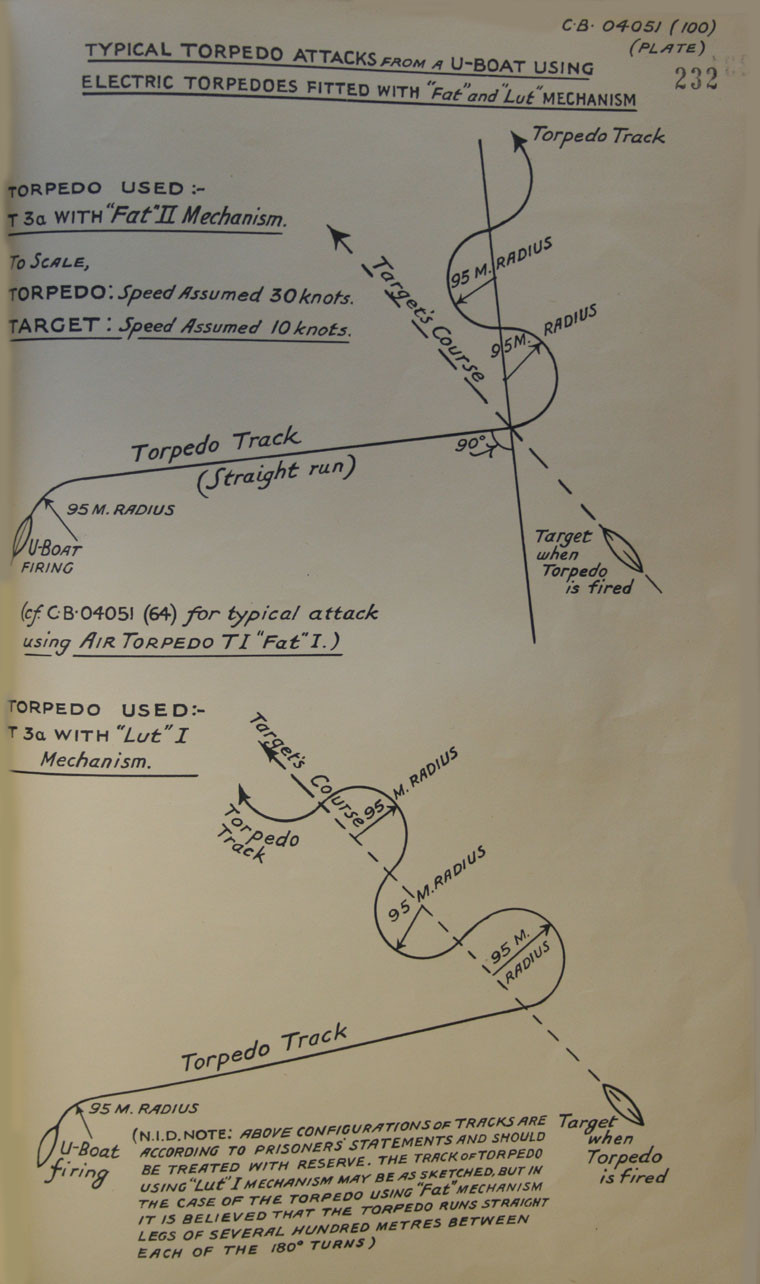 C·B· 04051 (100)
(PLATE)
232
TYPICAL TORPEDO ATTACKS FROM A U-BOAT USING
ELECTRIC TORPEDOES FITTED WITH "Fat" and "Lut" MECHANISM
Torpedo Track
TORPEDO USED :-
T 3a WITH "Fat" II Mechanism.
To SCALE,
TORPEDO: Speed Assumed 30 knots.
TARGET : Speed Assumed 10 knots.
Target's Course
95 M. RADIUS
95 M. RADIUS
Torpedo Track
(Straight run)
90°
95 M. RADIUS
U-BOAT
FIRING
Target
when
Torpedo
is fired
(cf. C·B·04051 (64) for typical attack
using AIR TORPEDO TI "Fat" I.)
TORPEDO USED:-
T 3a WITH "Lut" I
Mechanism.
Target's Course
Torpedo
Track
95 M. RADIUS
95 M. RADIUS
95 M.
RADIUS
Torpedo Track
95 M. RADIUS
U-Boat
firing
Target
when
Torpedo
is fired
(N.I.D. NOTE: ABOVE CONFIGURATIONS OF TRACKS ARE
ACCORDING TO PRISONERS' STATEMENTS AND SHOULD
BE TREATED WITH RESERVE. THE TRACK OF TORPEDO
USING "Lut" I MECHANISM MAY BE AS SKETCHED, BUT IN
THE CASE OF THE TORPEDO USING "Fat" MECHANISM
IT IS BELIEVED THAT THE TORPEDO RUNS STRAIGHT
LEGS OF SEVERAL HUNDRED METRES BETWEEN
EACH OF THE 180° TURNS)